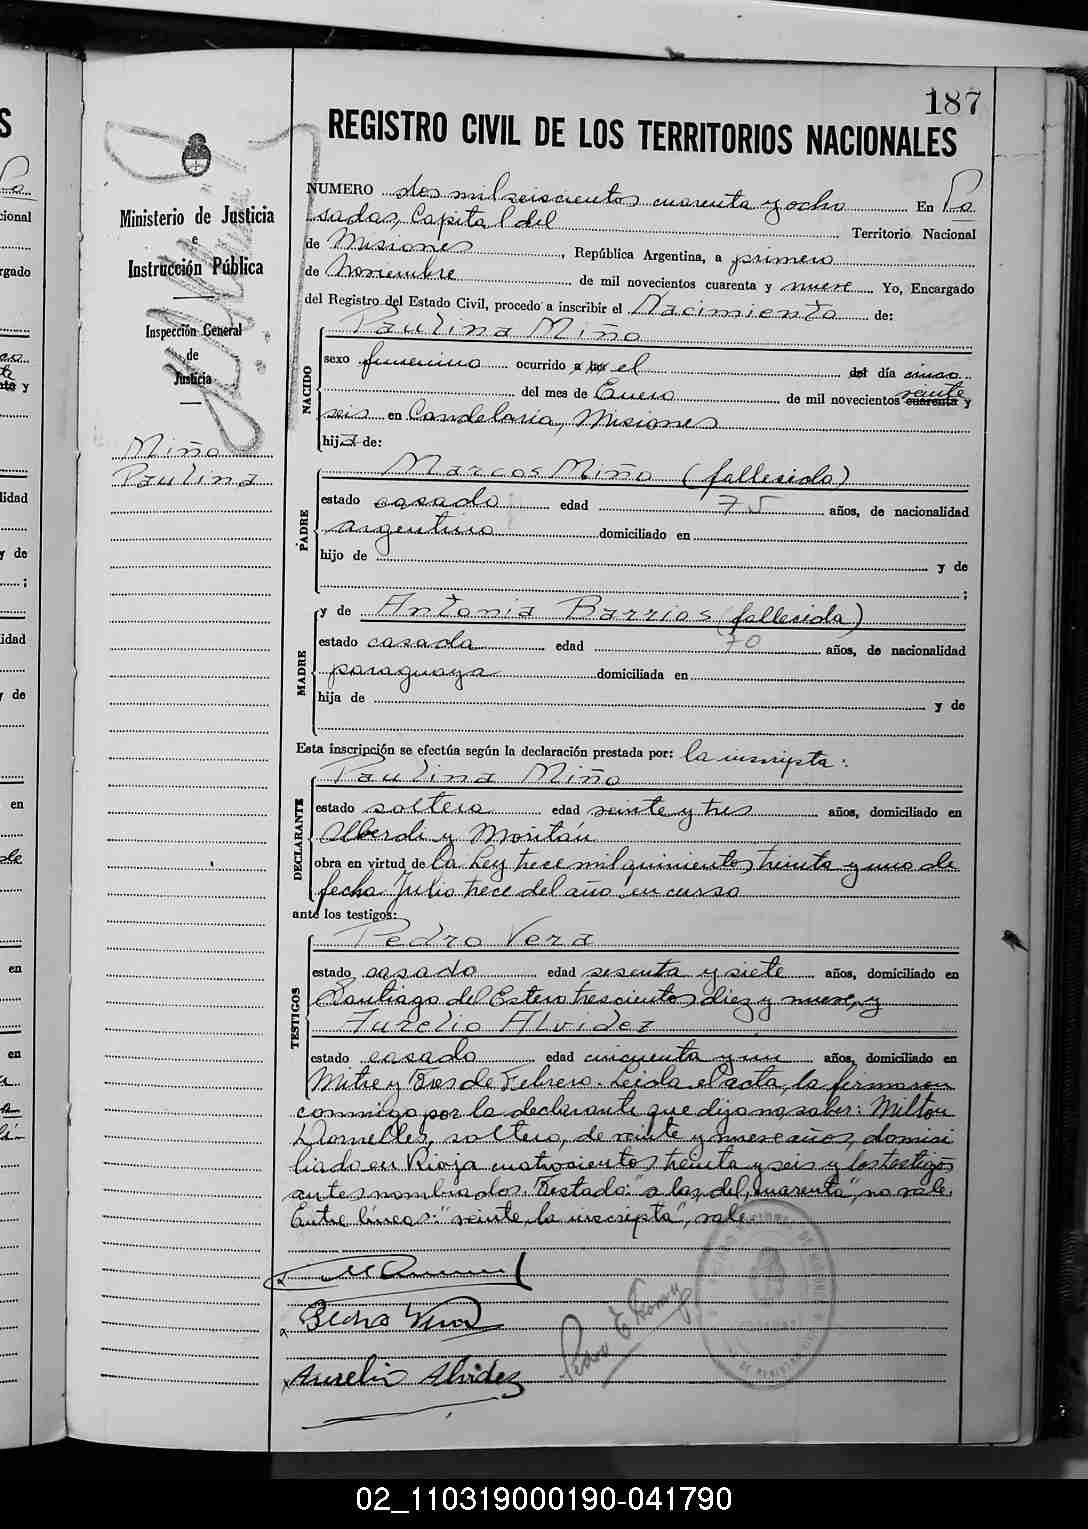 187
REGISTRO CIVIL DE LOS TERRITORIOS NACIONALES
Ministerio de Justicia
e
Instrucción Pública
Inspección General
de
Justicia
Miño
Paulina
NUMERO dos mil seiscientos cuarenta y ocho En Po
sadas, Capital del Territorio Nacional
de Misiones, República Argentina, a primero
de Noviembre de mil novecientos cuarenta y nueve Yo, Encargado
del Registro del Estado Civil, procedo a inscribir el Nacimiento de:
NACIDO
Paulina Miño
sexo femenino ocurrido a las el del día cinco
del mes de Enero de mil novecientos cuarenta veinte y
seis en Candelaria, Misiones
hija de:
PADRE
Marcos Miño (fallecido)
estado casado edad 75 años, de nacionalidad
argentino domiciliado en
hijo de y de
;
MADRE
y de Antonia Barrios (fallecida)
estado casada edad 70 años, de nacionalidad
paraguaya domiciliada en
hija de y de
Esta inscripción se efectúa según la declaración prestada por: la inscripta:
DECLARANTE
Paulina Miño
estado soltera edad veinte y tres años, domiciliado en
Alberdi y Moritán
obra en virtud de la Ley trece mil quinientos treinta y uno de
fecha Julio trece del año en curso
ante los testigos:
TESTIGOS
Pedro Vera
estado casado edad sesenta y siete años, domiciliado en
Santiago del Estero trescientos diez y nueve, y
Aurelio Alvidez
estado casado edad cincuenta y un años, domiciliado en
Mitre y Tres de Febrero. Leida el acta, la firmaron
conmigo por la declarante que dijo no saber: Milton
Dornelles, soltero, de veinte y nueve años, domici
liado en Rioja cuatrocientos treinta y seis y los testigos
antes nombrados. Testado: "a las, del, cuarenta", no vale.
Entre líneas: "veinte, la inscripta", vale.
Pedro Vera
Aurelio Alvidez
02_110319000190-041790